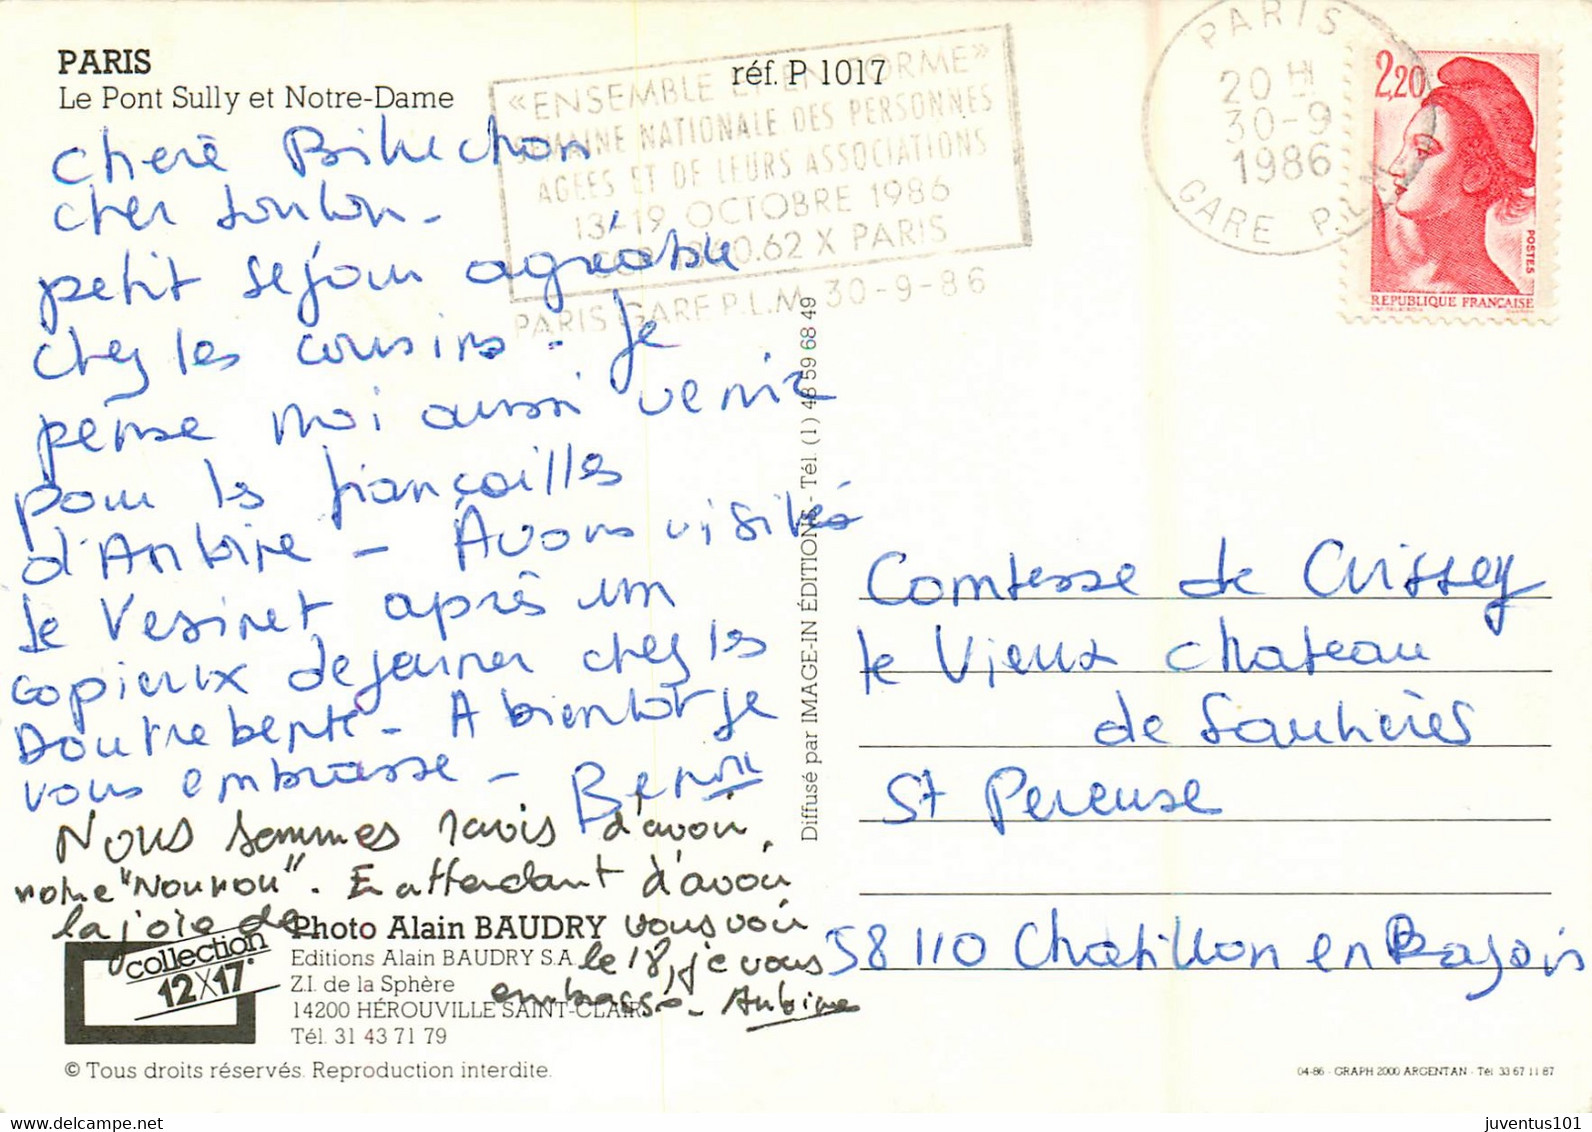 PARIS
Le Pont Sully et Notre-Dame
réf. P 1017
«ENSEMBLE ET EN FORME»
SEMAINE NATIONALE DES PERSONNES
AGEES ET DE LEURS ASSOCIATIONS
13-19 OCTOBRE 1986
62 X PARIS
PARIS GARE P.L.M. 30-9-86
PARIS
20 H
30-9
1986
GARE P.L.M
2,20
POSTES
REPUBLIQUE FRANÇAISE
chere
cher tonton -
petit sejour agréable
chez les cousins - Je
pense moi aussi venir
pour les fiançailles
d'Antoine - Avons visités
le Vesinet après un
copieux dejeuner chez les
Doutrebente - A bientot je
vous embrasse - Benoit
Nous sommes ravis d'avoir
notre "Nounou". En attendant d'avoir
la joie de vous voir
le 18, je vous
embrasse - Antoine
Comtesse de Cussey
le Vieux chateau
de Saulières
St Pereuse
58110 Chatillon en Bazois
Diffusé par IMAGE-IN ÉDITIONS - Tél. (1) 48 59 68 49
collection
12X17
Photo Alain BAUDRY
Editions Alain BAUDRY S.A.
Z.I. de la Sphère
14200 HÉROUVILLE SAINT-CLAIR
Tél. 31 43 71 79
© Tous droits réservés. Reproduction interdite.
04-86 - GRAPH 2000 ARGENTAN - Tél 33 67 11 87
juventus101